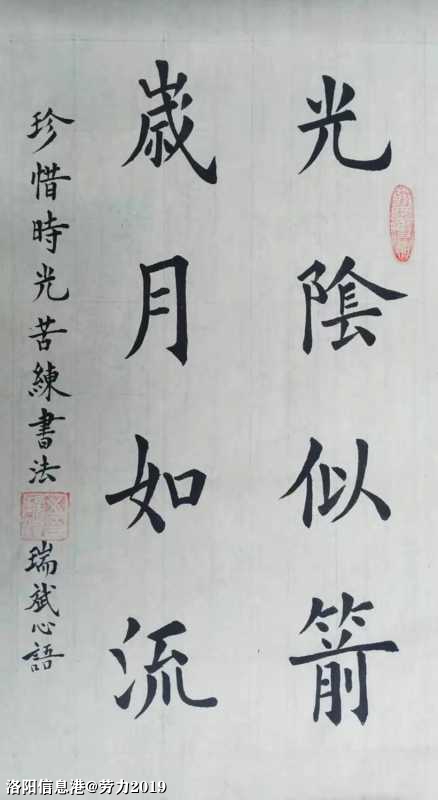 光陰似箭
歲月如流
珍惜時光苦練書法
瑞斌心語
洛阳信息港@劳力2019